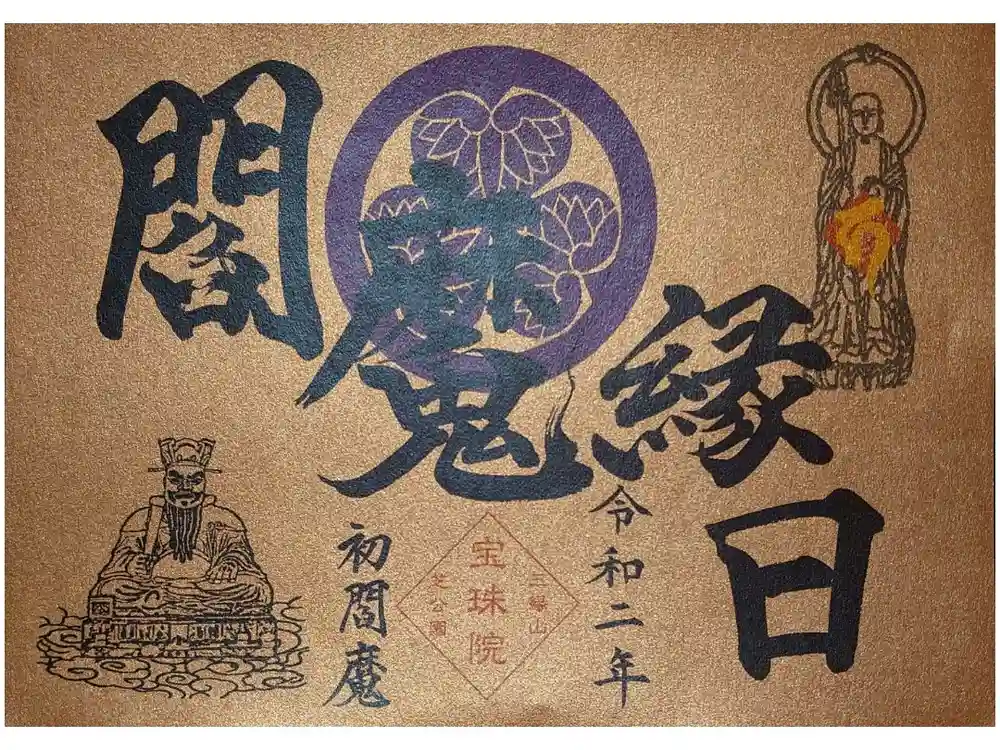 閻魔縁日
令和二年
三縁山
宝珠院
芝公園
初閻魔